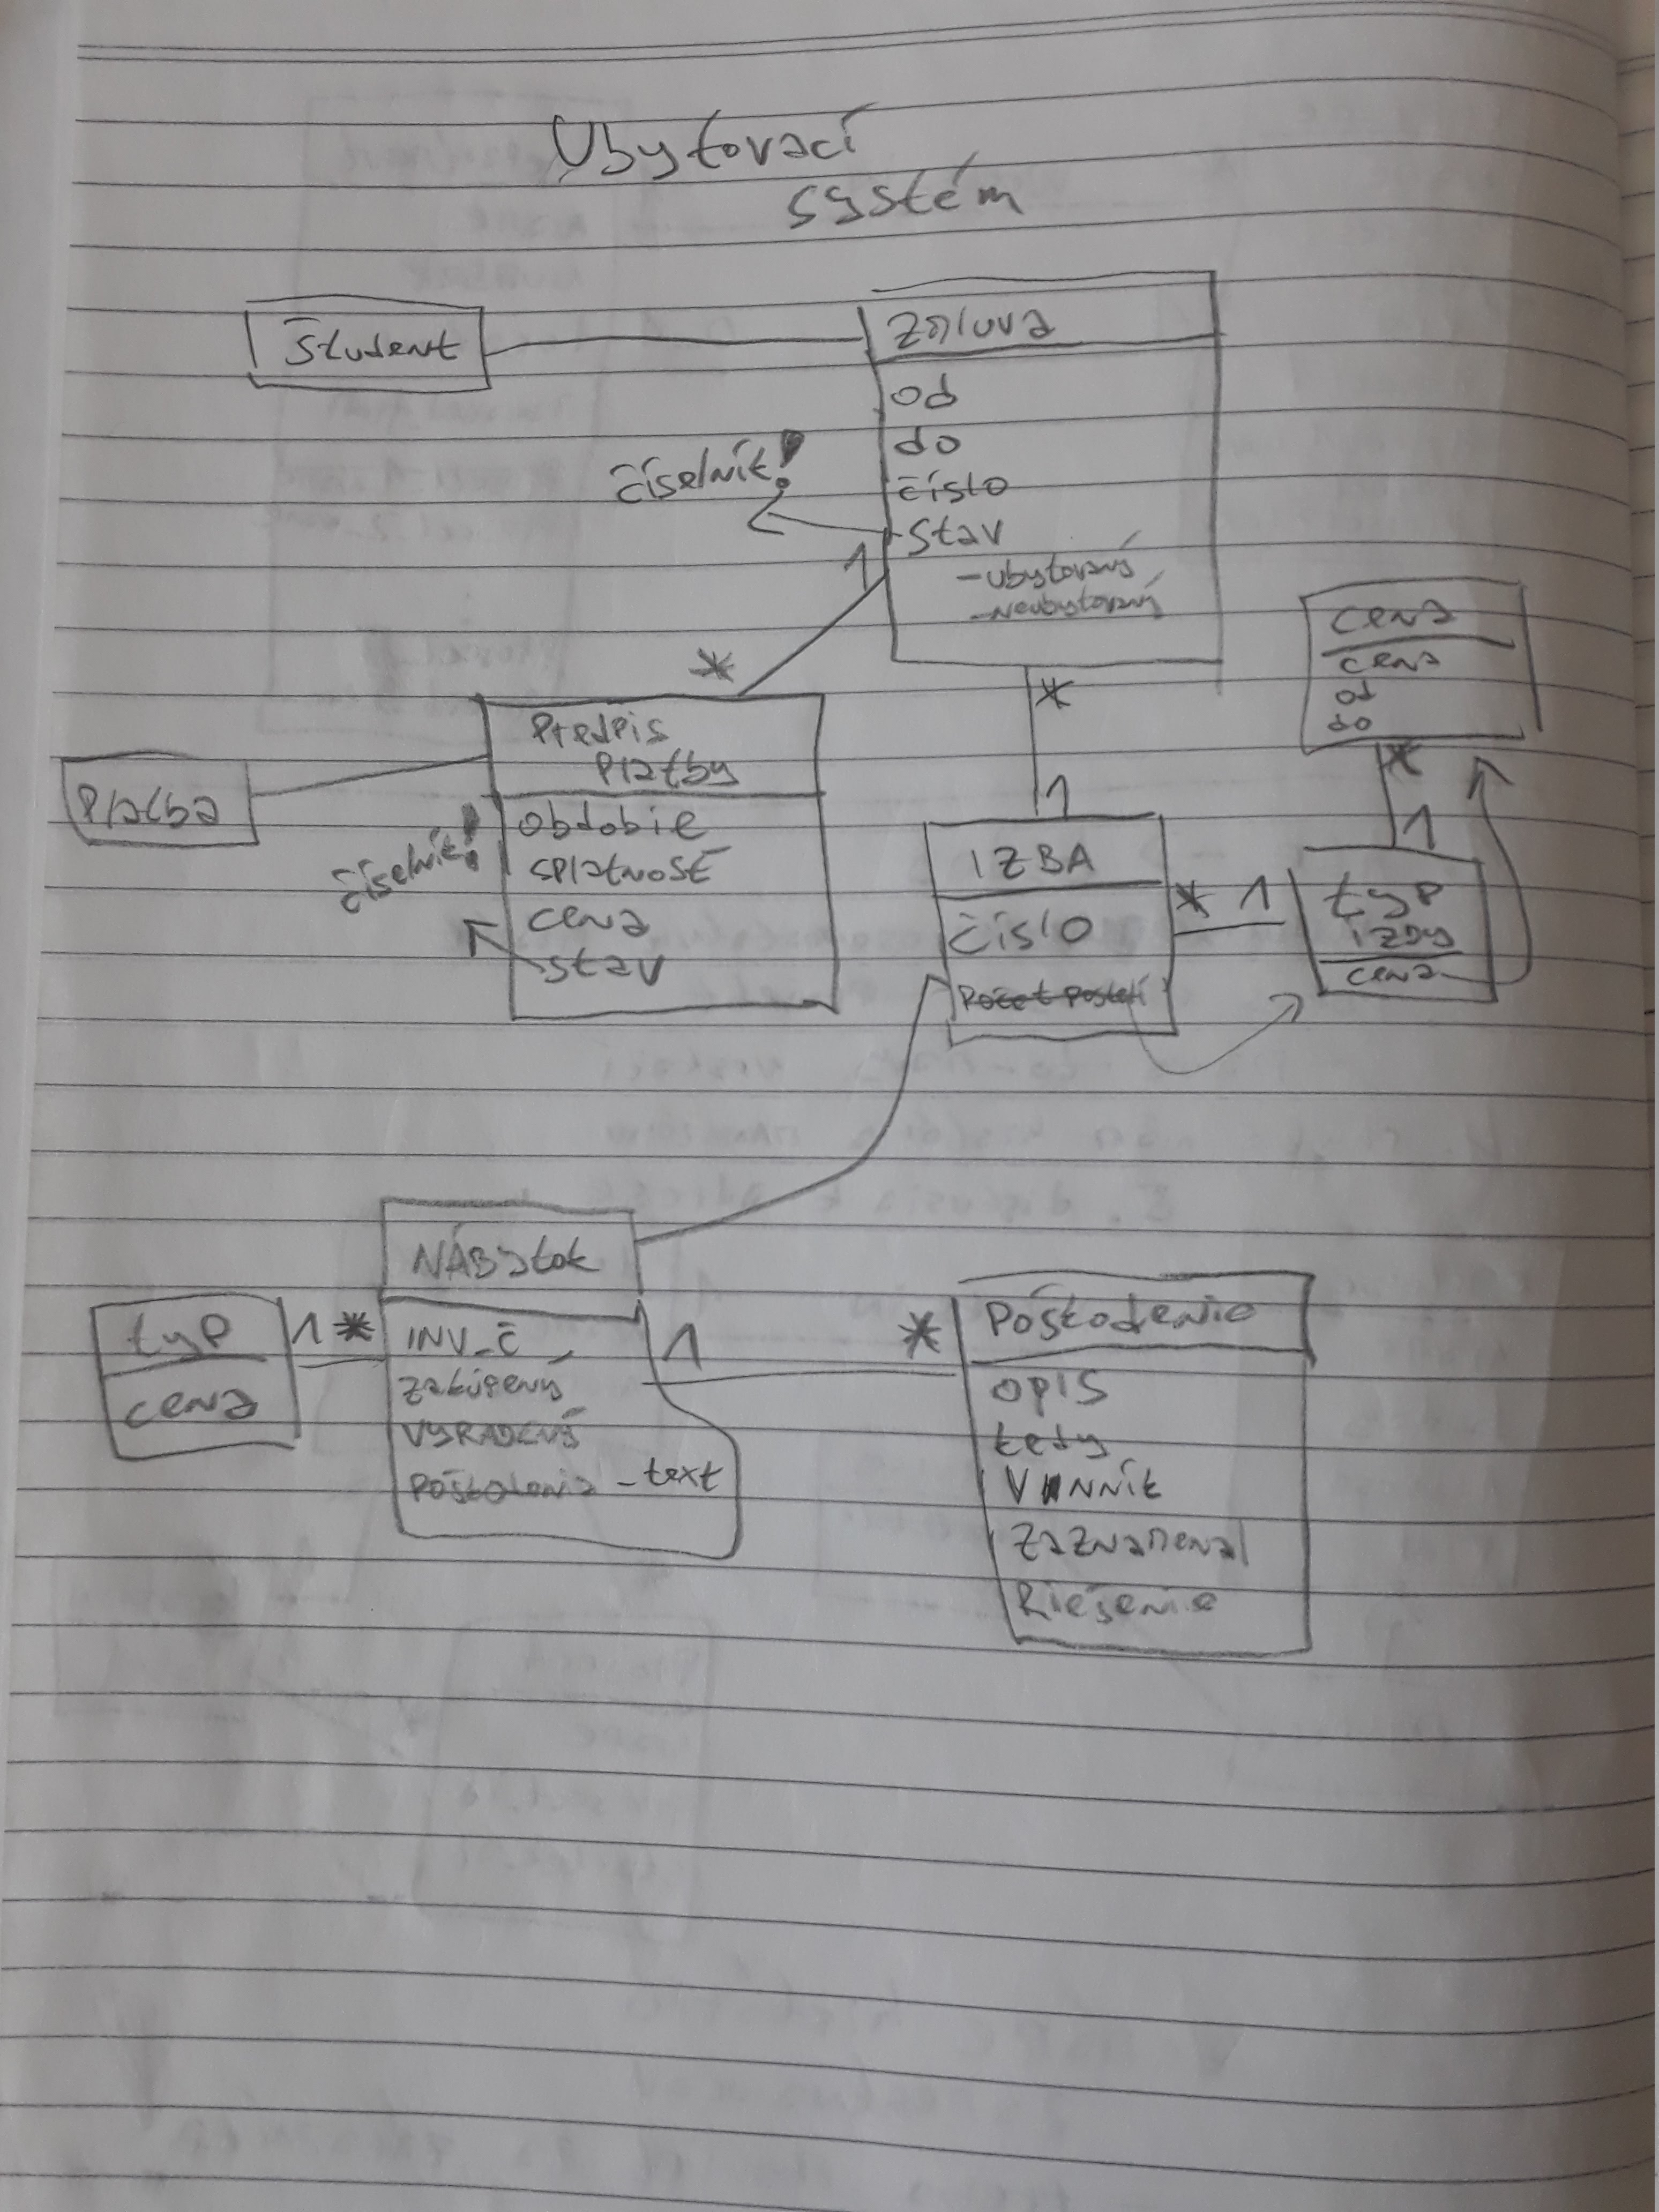 Ubytovací
systém
Študent
Zmluva
od
do
číslo
stav
-ubytovaný
-neubytovaný
číselník!
1
*
*
1
cena
cena
od
do
*
1
Predpis
Platby
obdobie
splatnosť
cena
stav
Platba
číselník!
IZBA
číslo
Počet postelí
* 1
typ
izby
cena
NÁBytok
INV_č
zakúpený
VYRADENÝ
Poškodenia - text
typ
cena
1 *
1
*
Poškodenie
OPIS
kedy
Vinník
Zaznamenal
Riešenie